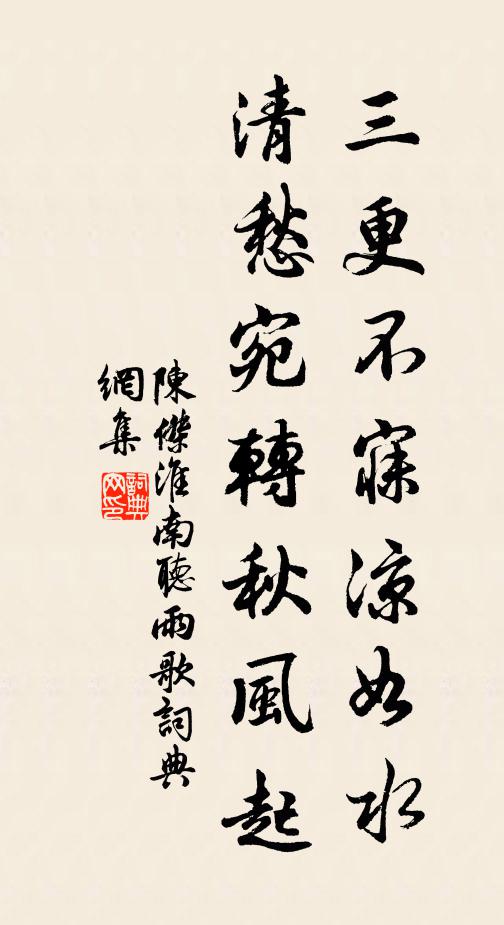 三更不寐涼如水
清愁宛轉秋風起
陳傑淮南聽雨歌詞典
網集
詞典
网印